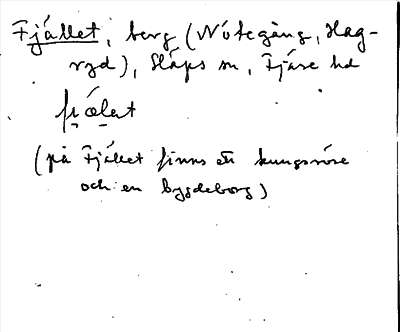 Fjället, berg (Nötegång, Hag-
ryd), Släps sn, Fjäre hd
fjælat
(på Fjället finns ett kungsröse
och en bygdeborg)